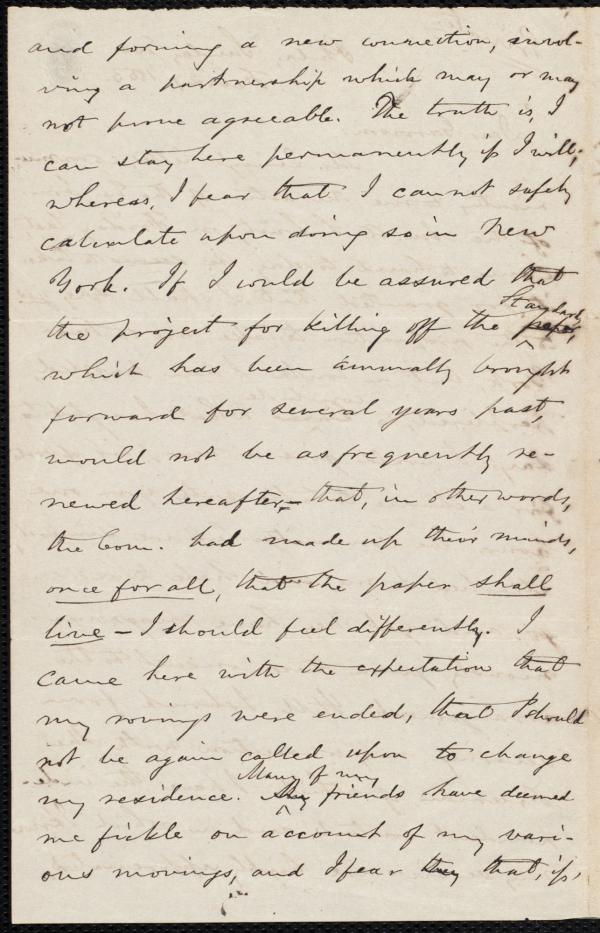 and forming a new connection, invol-
ving a partnership which may or may
not prove agreeable. The truth is, I
can stay here permanently if I will;
whereas, I fear that I cannot safely
calculate upon doing so in New
York. If I could be assured that
Standard,
the project for killing off the paper,
which has been annually brought
forward for several years past,
would not be as frequently re-
newed hereafter,– that, in other words,
the Com. had made up their minds,
once for all, that the paper shall
live – I should feel differently. I
came here with the expectation that
my rovings were ended, that I should
not be again called upon to change
Many of my
my residence. My friends have deemed
me fickle on account of my vari-
ous movings, and I fear they that, if,